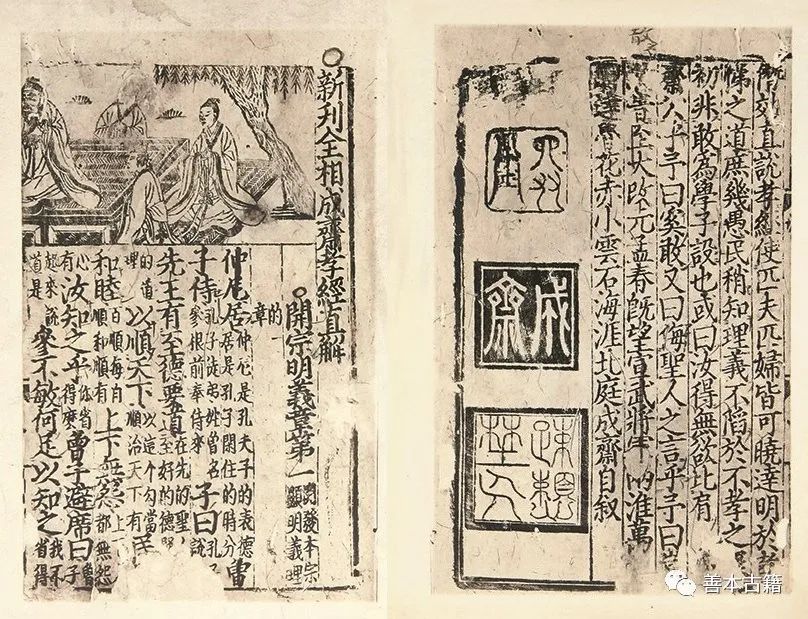 效直說孝經使匹夫匹婦皆可曉達明於孝
悌之道庶幾愚民稍知理義不陷於不孝之
初非敢為學子設也或曰汝得無欲比有
齋公乎予曰奚敢又曰侮聖人之言乎予曰
至大改元孟春既望宣武將軍兩淮萬
戶達魯花赤小雲石海涯北庭成齋自叙
成齋
疎懶野人
新刊全相成齋孝經直解
開宗明義章第一 開發本宗顯明義理
的一章
仲尼居 仲尼是孔夫子的表德居是孔子閑住的時分 曾
子侍 孔子徒弟姓曾名參根前奉侍來 子曰 孔子說
先王有至德要道 在先的聖人至好的德
的道理 以順天下 以這个勾當順治天下有 民
和睦 百姓每自順和順有 上下無怨 上下都無怨
心有 汝知之乎 你省得麼 曾子避席曰 曾子
起來說道是 參不敏何足以知之 我不省得
善本古籍